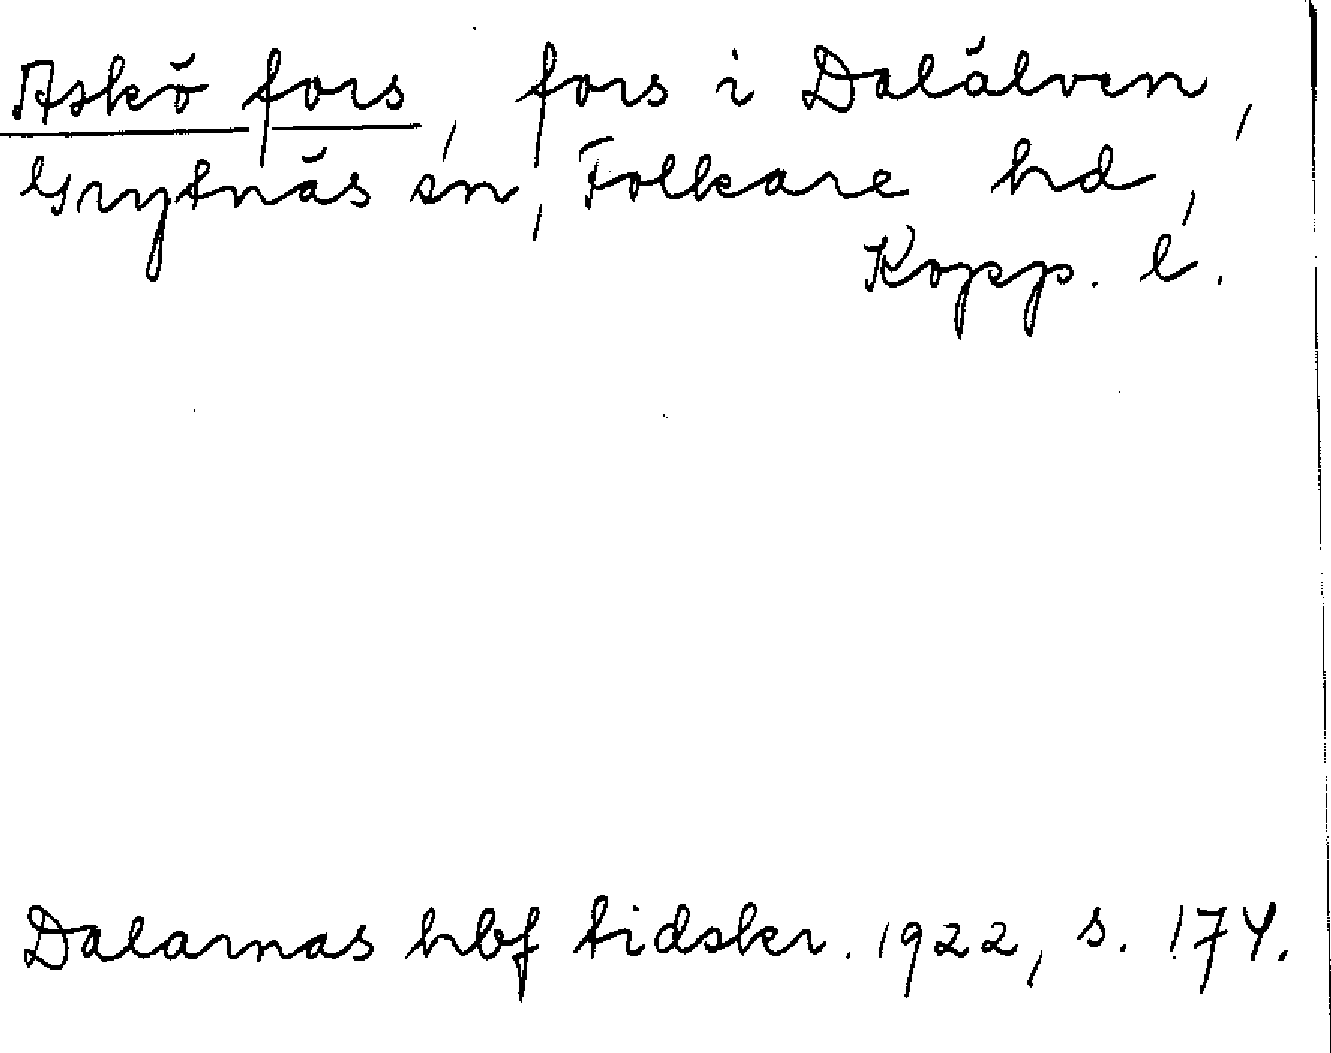 Askö fors, fors i Dalälven,
Grytnäs sn, Folkare hd,
Kopp. l.
Dalarnas hbf tidskr. 1922, s. 174.